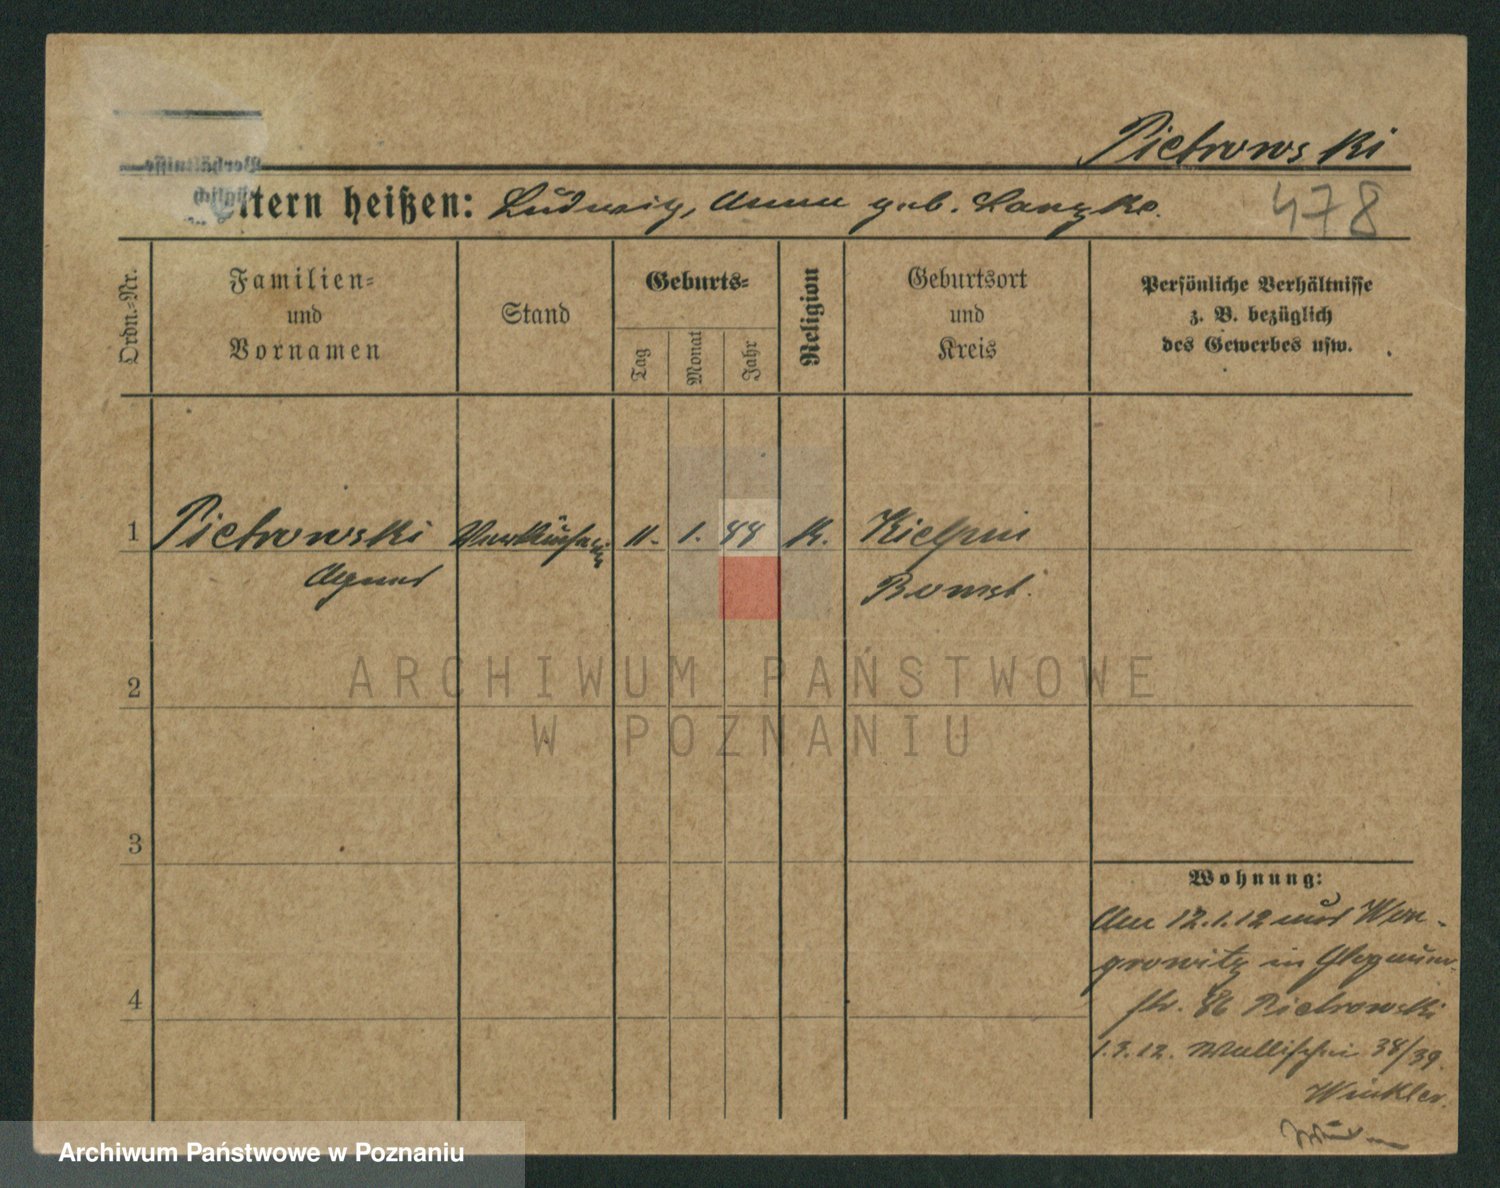 Pietrowski
Eltern heißen: Ludwig, Anna geb. Lanzke.
478
Ordn.=Nr.
Familien=
und
Vornamen
Stand
Geburts=
Tag
Monat
Jahr
Religion
Geburtsort
und
Kreis
Persönliche Verhältnisse
z. B. bezüglich
des Gewerbes usw.
1 Pietrowski Verkäuferin 11. 1. 88 K. Kielpin
Agnes Bomst.
2
3
4
Wohnung:
Am 12.1.12 aus Won-
growitz in Glogauer-
str. 86 Pietrowski
1.3.12. Wallischei 38/39.
Winkler.
ARCHIWUM PAŃSTWOWE
W POZNANIU
Archiwum Państwowe w Poznaniu